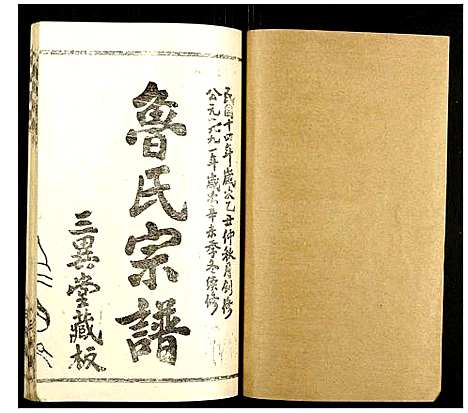 民国十四年歲次乙丑仲秋月創修
公元一九九一年歲次辛未季冬續修
魯氏宗譜
三異堂藏板